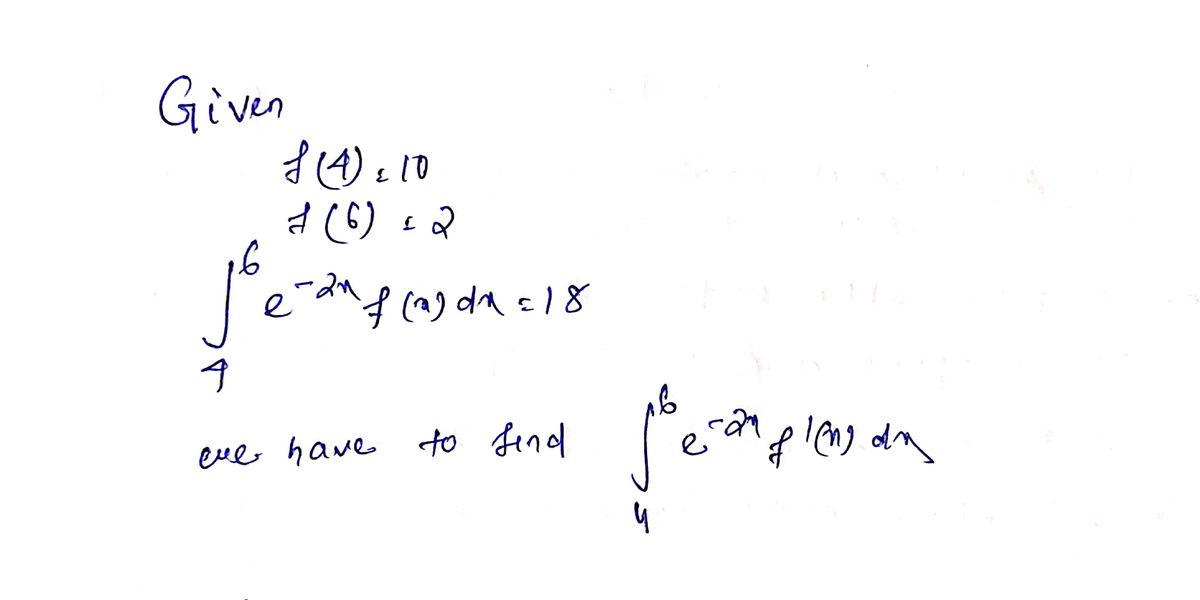 Given
f(4) = 10
f(6) = 2
∫₄⁶ e^{-2x} f(x) dx = 18
we have to find ∫₄⁶ e^{-2x} f'(x) dx